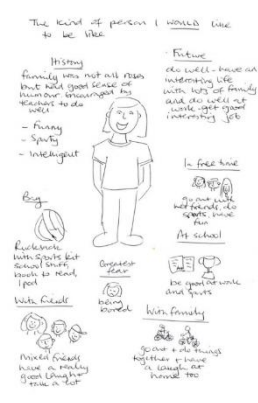 The kind of person I would like
to be like
History
family was not all roses
but had good sense of
humour. Encouraged by
teachers to do
well
- Funny
- Sporty
- Intelligent
Future
do well - have an
interesting life
with lots of family
and do well at
work - get good
interesting job
In free time
go out with
her friends, do
sports, have
fun
At school
be good at work
and sports
Bag
Rucksack
with sports kit
school stuff,
book to read,
ipod
Greatest
fear
being
bored
With friends
mixed friends
have a really
good laugh +
talk a lot
With family
go out + do things
together + have
a laugh at
home too